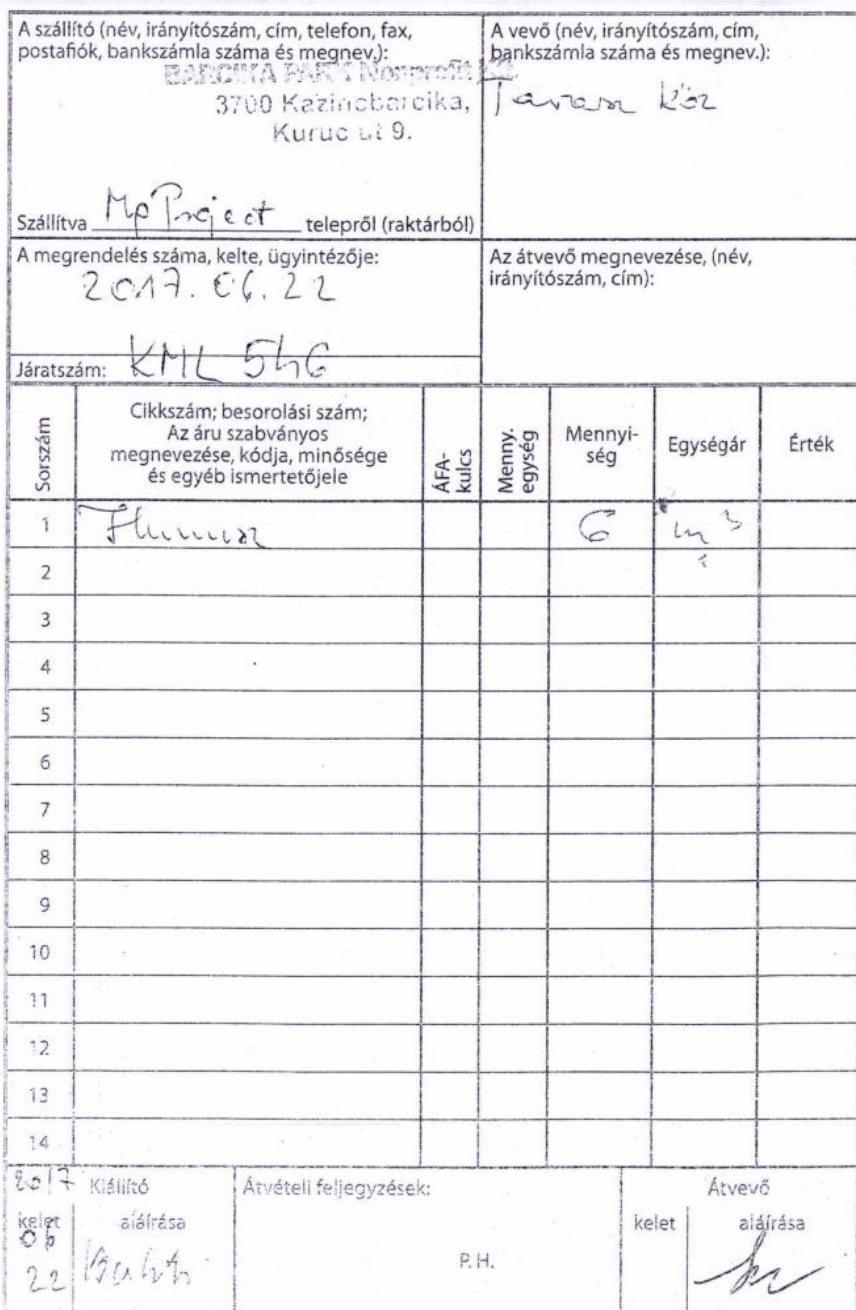 A szállító (név, irányítószám, cím, telefon, fax,
postafiók, bankszámla száma és megnev.):
BARCIKA PARK Nonprofit Kft.
3700 Kazincbarcika,
Kuruc út 9.
Szállítva Mp Project telepről (raktárból)
A vevő (név, irányítószám, cím,
bankszámla száma és megnev.):
Tavasz köz
A megrendelés száma, kelte, ügyintézője:
2017.06.22
Járatszám: KML 546
Az átvevő megnevezése, (név,
irányítószám, cím):
Sorszám
Cikkszám; besorolási szám;
Az áru szabványos
megnevezése, kódja, minősége
és egyéb ismertetőjele
ÁFA-
kulcs
Menny.
egység
Mennyi-
ség
Egységár
Érték
1 Humusz 6 m³
2
3
4
5
6
7
8
9
10
11
12
13
14
2017 Kiállító
kelet aláírása
06
22
Átvételi feljegyzések:
P. H.
Átvevő
kelet aláírása